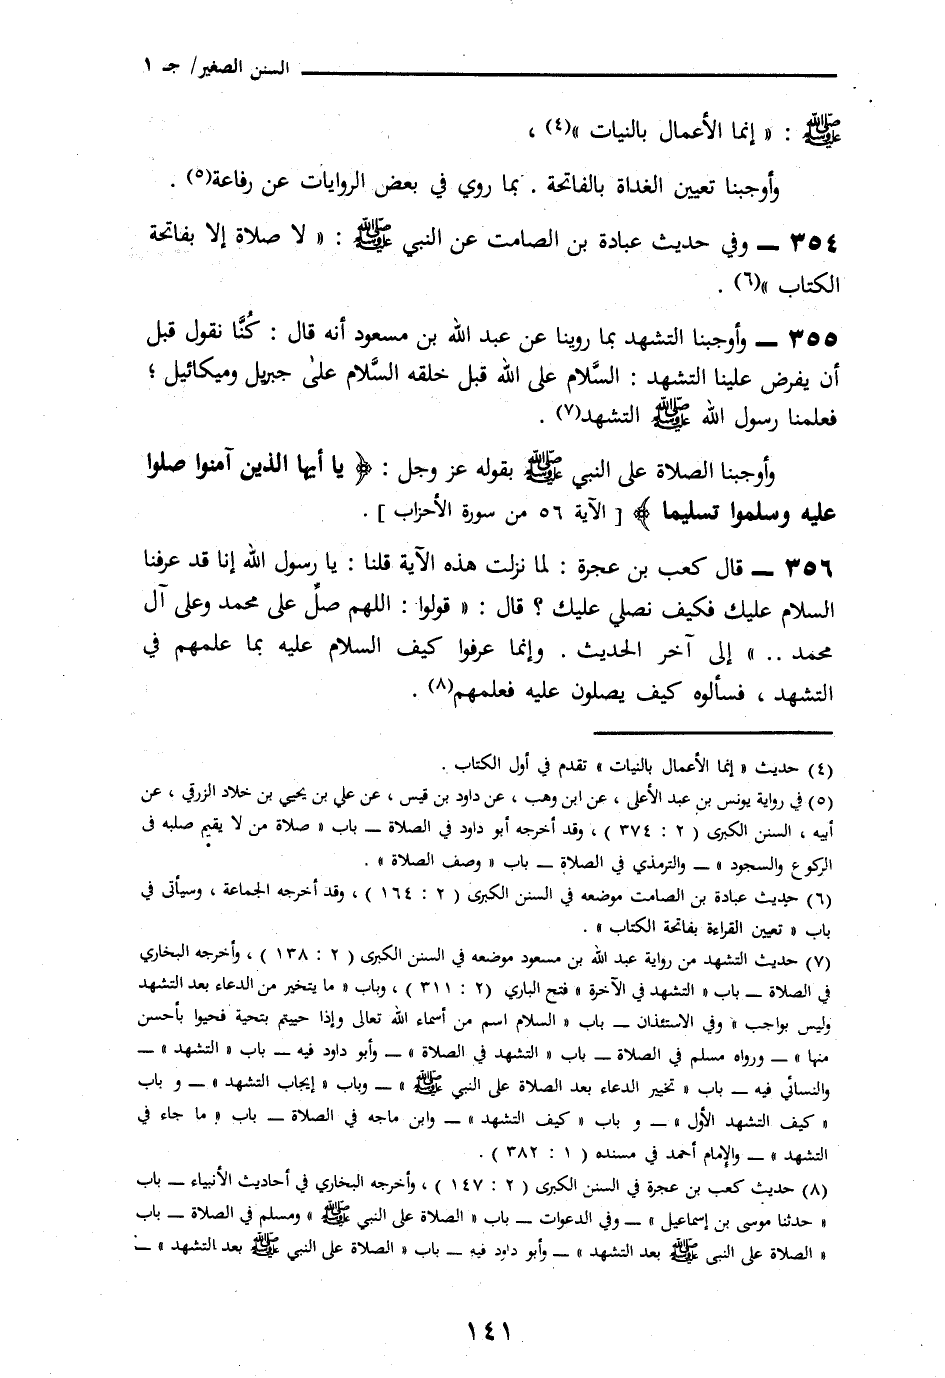 السنن الصغير/ جـ ١
ﷺ : « إنما الأعمال بالنيات »(٤) ،
وأوجبنا تعيين الغداة بالفاتحة . بما روي في بعض الروايات عن رفاعة(٥) .
٣٥٤ ــ وفي حديث عبادة بن الصامت عن النبي ﷺ : « لا صلاة إلا بفاتحة
الكتاب »(٦) .
٣٥٥ ــ وأوجبنا التشهد بما روينا عن عبد الله بن مسعود أنه قال : كُنَّا نقول قبل
أن يفرض علينا التشهد : السَّلام على الله قبل خلقه السَّلام علىٰ جبريل وميكائيل ؛
فعلمنا رسول الله ﷺ التشهد(٧) .
وأوجبنا الصلاة على النبي ﷺ بقوله عز وجل : ﴿ يا أيها الذين آمنوا صلوا
عليه وسلموا تسليما ﴾ [ الآية ٥٦ من سورة الأحزاب ] .
٣٥٦ ــ قال كعب بن عجرة : لما نزلت هذه الآية قلنا : يا رسول الله إنا قد عرفنا
السلام عليك فكيف نصلي عليك ؟ قال : « قولوا : اللهم صلِّ على محمد وعلى آل
محمد .. » إلى آخر الحديث . وإنما عرفوا كيف السلام عليه بما علمهم في
التشهد ، فسألوه كيف يصلون عليه فعلمهم(٨) .
(٤) حديث « إنما الأعمال بالنيات » تقدم في أول الكتاب .
(٥) في رواية يونس بن عبد الأعلى ، عن ابن وهب ، عن داود بن قيس ، عن علي بن يحيي بن خلاد الزرقي ، عن
أبيه ، السنن الكبرى ( ٢ : ٣٧٤ ) ، وقد أخرجه أبو داود في الصلاة ــ باب « صلاة من لا يقيم صلبه فى
الركوع والسجود » ــ والترمذي في الصلاة ــ باب « وصف الصلاة » .
(٦) حديث عبادة بن الصامت موضعه في السنن الكبرى ( ٢ : ١٦٤ ) ، وقد أخرجه الجماعة ، وسيأتى في
باب « تعيين القراءة بفاتحة الكتاب » .
(٧) حديث التشهد من رواية عبد الله بن مسعود موضعه في السنن الكبرى ( ٢ : ١٣٨ ) ، وأخرجه البخاري
في الصلاة ــ باب « التشهد في الآخرة » فتح الباري (٢ : ٣١١ ) ، وباب « ما يتخير من الدعاء بعد التشهد
وليس بواجب » وفي الاستئذان ــ باب « السلام اسم من أسماء الله تعالى وإذا حييتم بتحية فحيوا بأحسن
منها » ــ ورواه مسلم في الصلاة ــ باب « التشهد في الصلاة » ــ وأبو داود فيه ــ باب « التشهد » ــ
والنسائي فيه ــ باب « تخيير الدعاء بعد الصلاة على النبي ﷺ » ــ وباب « إيجاب التشهد » ــ و باب
« كيف التشهد الأول » ــ و باب « كيف التشهد » ــ وابن ماجه في الصلاة ــ باب « ما جاء في
التشهد » ــ والإمام أحمد في مسنده ( ١ : ٣٨٢ ) .
(٨) حديث كعب بن عجرة في السنن الكبرى ( ٢ : ١٤٧ ) ، وأخرجه البخاري في أحاديث الأنبياء ــ باب
« حدثنا موسى بن إسماعيل » ــ وفي الدعوات ــ باب « الصلاة على النبي ﷺ » ومسلم في الصلاة ــ باب
« الصلاة على النبى ﷺ بعد التشهد » ــ وأبو داود فيه ــ باب « الصلاة على النبي ﷺ بعد التشهد » ــ
١٤١